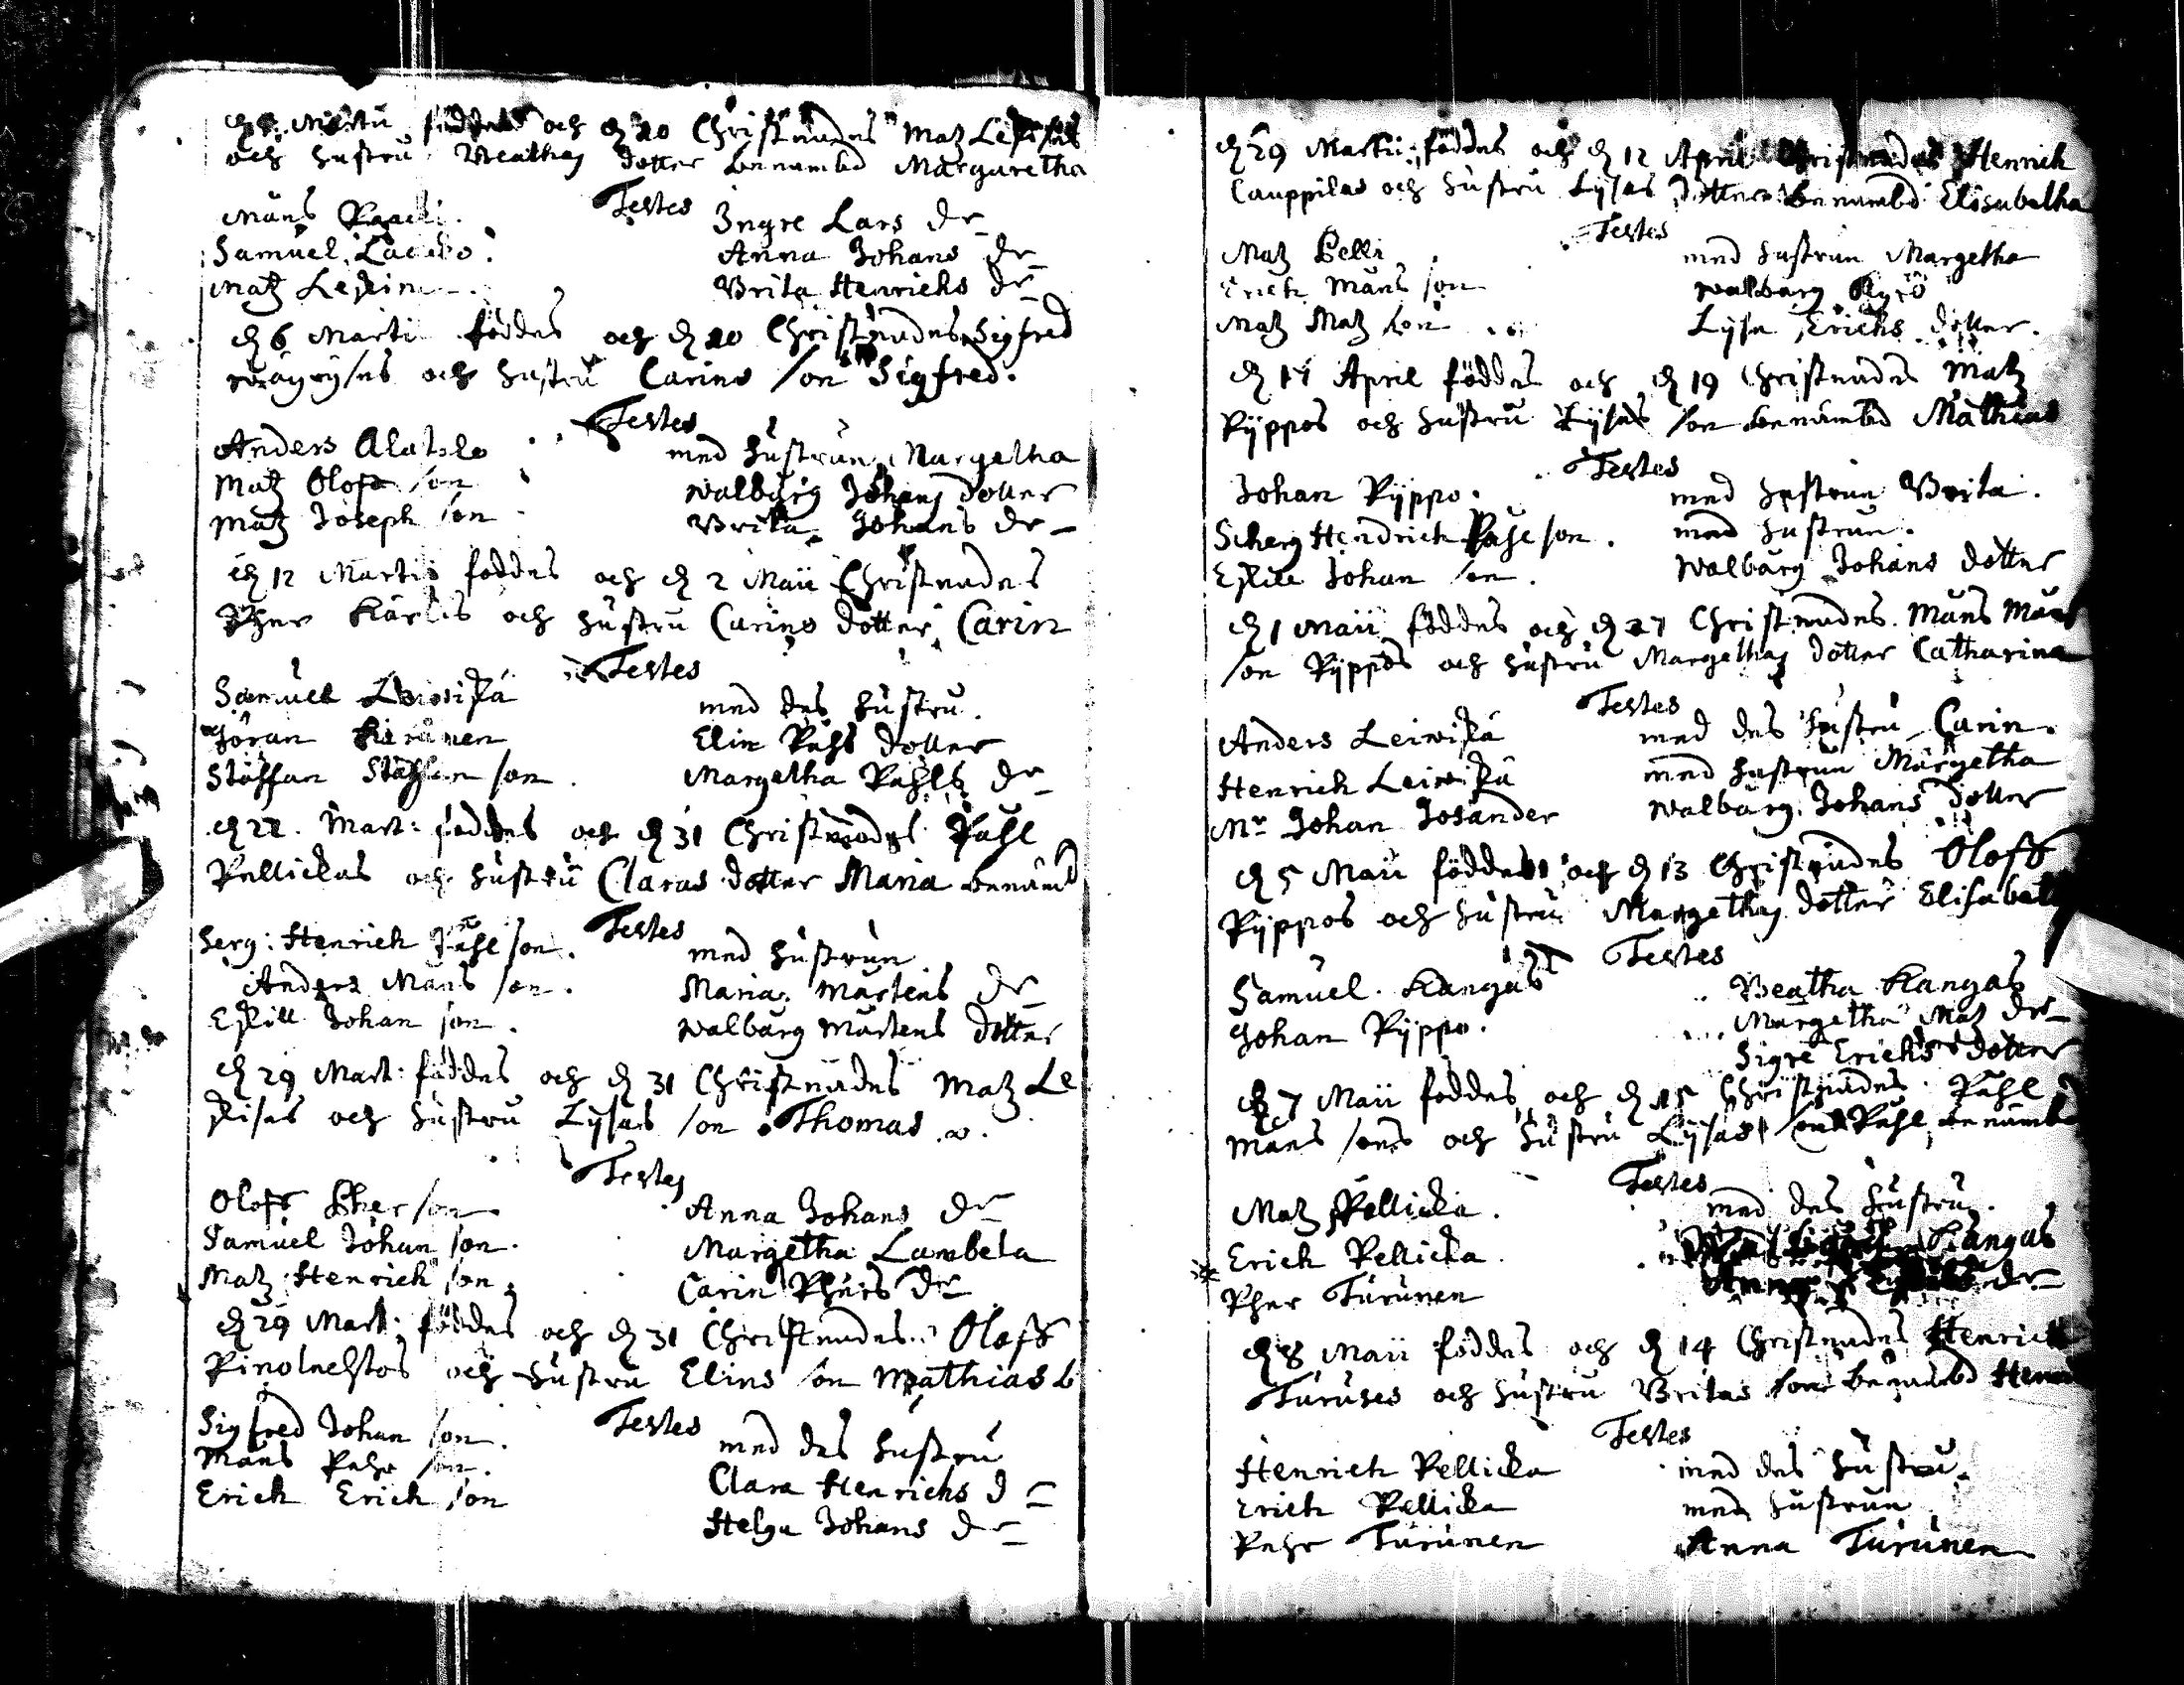 Martii föddes och d 20 Christnades Matz
och hustru Beathas dotter benembd Margaretha
Testes
Måns Ingre Lars dr
Samuel Anna Johans dr
Matz Brita Henrichs dr
d 6 Martii föddes och d 20 Christnades Sigfred
och hustru Carins son Sigfred.
Testes
Anders Alatalo med hustrun Margetha
Matz Olofs son Walbårg Johans dotter
Matz Joseph son Brita Johans dr
d 12 Martii föddes och d 2 Maii Christnades
Pher och hustru Carins dotter Carin
Testes
Samuel Leiviskä med des hustru.
Jöran Elin Påhls dotter
Staffan Staffan son. Margetha Påhls dr
d 22. Mart: föddes och d 31 Christnades Påhl
Pellickas och hustru Claras dotter Maria benämd
Testes
Serg: Henrich Påhl son. med hustrun
Anders Måns son. Maria Mårtens dr
Eskill Johan son. Walbårg Mårtens dotter
d 29 Mart: föddes och d 31 Christnades Matz Le
skisas och hustru Lysas son Thomas
Testes
Oloff Pher son Anna Johans dr
Samuel Johan son. Margetha Lambela
Matz Henrich son Carin Phers dr
d 29 Mart: föddes och d 31 Christnades Oloff
och hustru Elins son Mathias b
Testes
Sigfred Johan son. med des hustru
Måns Pehr son. Clara Henrichs d
Erich Erich son Helga Johans dr
d 29 Martii föddes och d 12 April Christnades Henrich
Cauppilas och hustru Lysas dotter benembd Elisabetha
Testes
Matz Pelli med hustrun Margetha
Erich Måns son Walbårg
Matz Matz son Lysa Erichs dotter.
d 14 April föddes och d 19 Christnades Matz
Ryppos och hustru Lysas son benämbd Mathias
Testes
Johan Ryppo. med hustrun Brita.
Scherg Hendrich Påhl son. med hustrun.
Eskill Johan son. Walbårg Johans dotter
d 1 Maii föddes och d 27 Christnades. Måns Måns
son Ryppos och hustru Margethas dotter Catharina
Testes
Anders Leiviskä med des hustru Carin.
Henrich Leiviskä med hustrun Margetha
Mr Johan Josander Walbårg Johans dotter
d 5 Maii föddes och d 13 Christnades Oloff
Ryppos och hustru Margethas dotter Elisabeth
Testes
Samuel Kangas Beatha Kangas
Johan Ryppo. Margetha Matz dr
Sigre Erichs dotter
d 7 Maii föddes och d 15 Christnades Påhl
Måns sons och hustru Lysas son Påhl benämbd
Testes
Matz Pellicka. med des hustru.
Erich Pellicka. Kangas
Pher Turunen Anna dr
d 8 Maii föddes och d 14 Christnades Henrich
Turuses och hustru Britas son benämbd
Testes
Henrich Pellicka med des hustru.
Erich Pellicka med hustrun
Pehr Turunen Anna Turunen